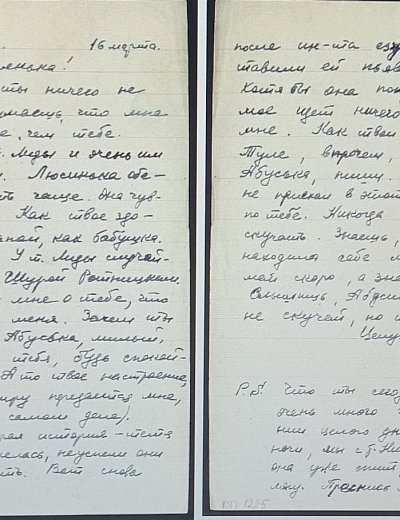 16 марта.
енька!
ты ничего не
умаешь, что мне
е, чем тебе.
т. Лиды и очень им
. Люсинька обе-
ть чаще. Она чув-
Как твоё здо-
аной, как бабушка.
У т. Лиды случай-
Шурой Ратницким.
мне о тебе, что
меня. Зачем ты
Абуська, милый,
тебя, будь спокой-
А то твоё настроение,
иру передается мне,
самом деле).
рая история - тётя
елась, неужели они
ть. Вот снова
после ин-та
тавили ей пьяв
Хотя бы она по
моё идет ничего
мне. Как твои
Туле, впрочем,
Абуська, пиши.
не прископ в этот
по тебе. Никогда
скучать. Знаешь,
находила себе м
май скоро, а зна
Слышишь, Абуси
не скучай, но и
Целу
P.S. Что ты сего
очень много
нии целого дн
ночи, мы с т. Ни
она уже спит,
ляю.
КП 1225